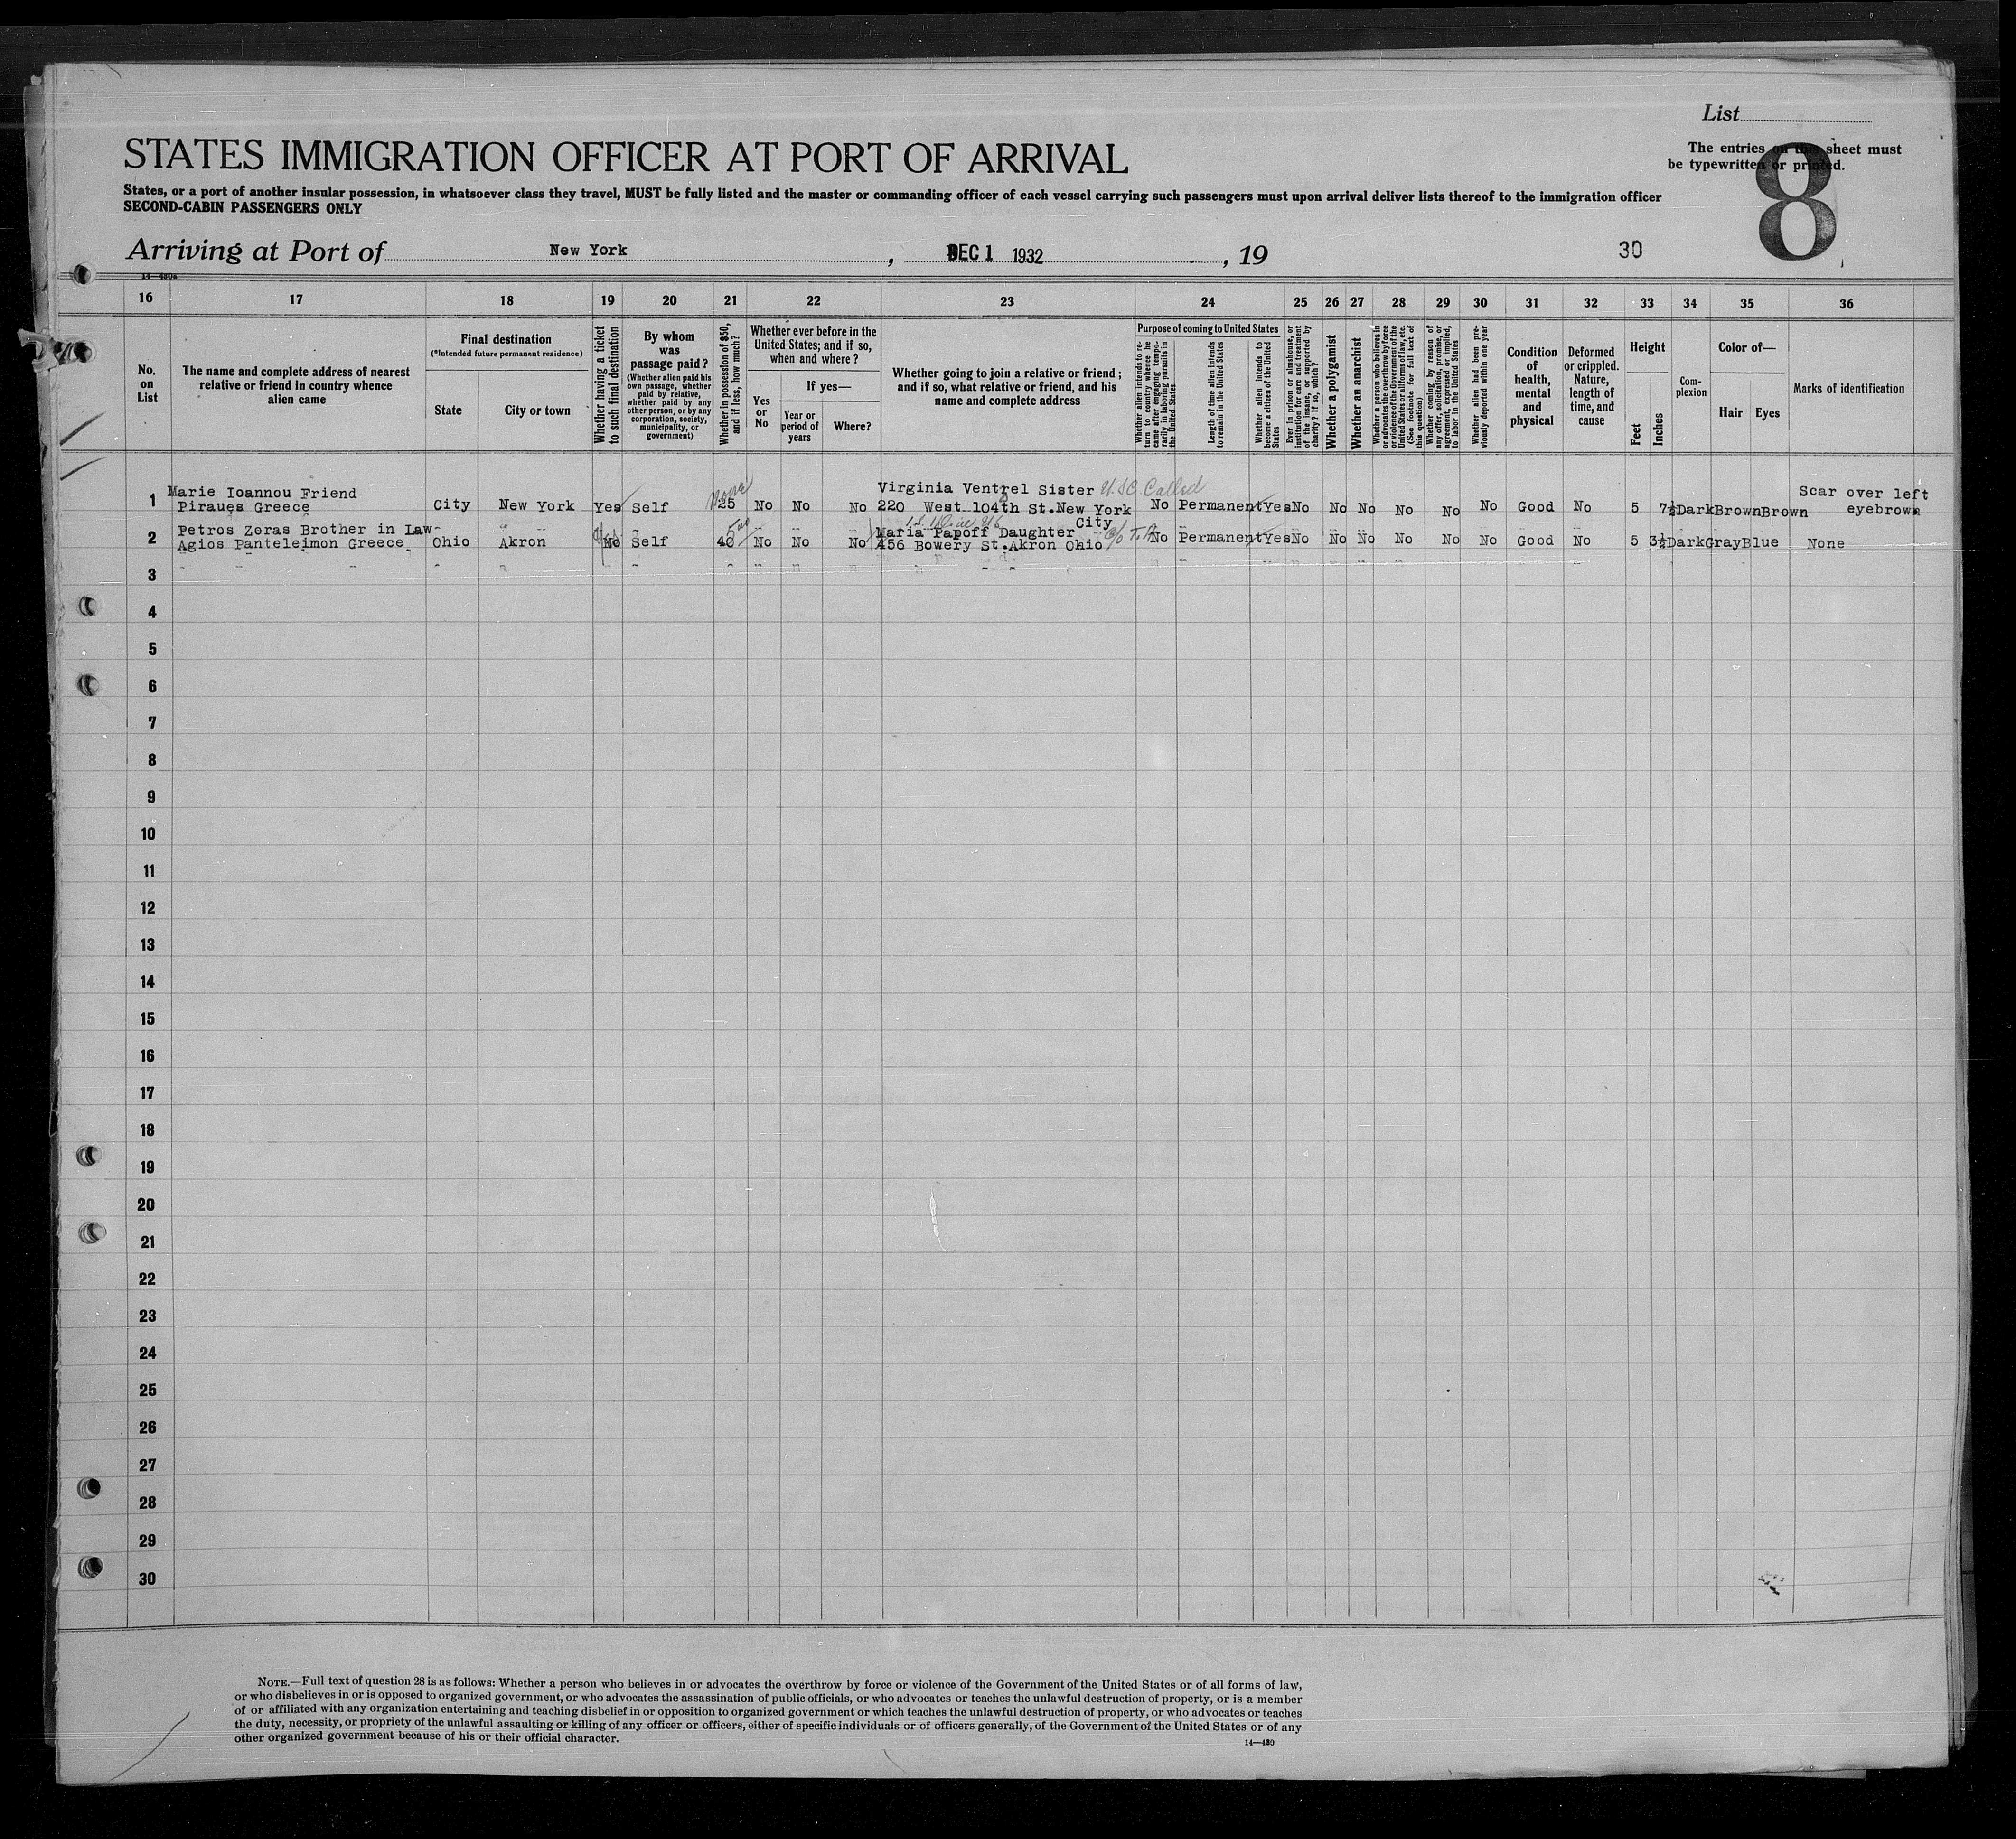 List
The entries on this sheet must
be typewritten or printed.
8
STATES IMMIGRATION OFFICER AT PORT OF ARRIVAL
States, or a port of another insular possession, in whatsoever class they travel, MUST be fully listed and the master or commanding officer of each vessel carrying such passengers must upon arrival deliver lists thereof to the immigration officer
SECOND-CABIN PASSENGERS ONLY
Arriving at Port of New York , DEC 1 1932 , 19 30
14—430a
16 17 18 19 20 21 22 23 24 25 26 27 28 29 30 31 32 33 34 35 36
No.
on
List
The name and complete address of nearest
relative or friend in country whence
alien came
Final destination
(*Intended future permanent residence)
State
City or town
Whether having a ticket
to such final destination
By whom
was
passage paid?
(Whether alien paid his
own passage, whether
paid by relative,
whether paid by any
other person, or by any
corporation, society,
municipality, or
government)
Whether in possession of $50,
and if less, how much?
Whether ever before in the
United States; and if so,
when and where?
Yes
or
No
If yes—
Year or
period of
years
Where?
Whether going to join a relative or friend;
and if so, what relative or friend, and his
name and complete address
Purpose of coming to United States
Whether alien intends to re-
turn to country whence he
came after engaging tempo-
rarily in laboring pursuits in
the United States
Length of time alien intends
to remain in the United States
Whether alien intends to
become a citizen of the United
States
Ever in prison or almshouse, or
institution for care and treatment
of the insane, or supported by
charity? If so, which?
Whether a polygamist
Whether an anarchist
Whether a person who believes in
or advocates the overthrow by force
or violence of the Government of the
United States or all forms of law, etc.
(See footnote for full text of
this question)
Whether coming by reason of
any offer, solicitation, promise, or
agreement, expressed or implied,
to labor in the United States
Whether alien had been pre-
viously deported within one year
Condition
of
health,
mental
and
physical
Deformed
or crippled.
Nature,
length of
time, and
cause
Height
Feet
Inches
Com-
plexion
Color of—
Hair
Eyes
Marks of identification
Marie Ioannou Friend Virginia Ventrel Sister U.S.C. Called Scar over left
1 Piraues Greece City New York Yes Self None 25 No No No 220 West 104th St. New York No Permanent Yes No No No No No No Good No 5 7½ Dark Brown Brown eyebrown
City
Petros Zoras Brother in Law Maria Papoff Daughter
2 Agios Panteleimon Greece Ohio Akron No Self 40 No No No 456 Bowery St. Akron Ohio No Permanent Yes No No No No No No Good No 5 3½ Dark Gray Blue None
3
4
5
6
7
8
9
10
11
12
13
14
15
16
17
18
19
20
21
22
23
24
25
26
27
28
29
30
NOTE.—Full text of question 28 is as follows: Whether a person who believes in or advocates the overthrow by force or violence of the Government of the United States or of all forms of law,
or who disbelieves in or is opposed to organized government, or who advocates the assassination of public officials, or who advocates or teaches the unlawful destruction of property, or is a member
of or affiliated with any organization entertaining and teaching disbelief in or opposition to organized government or which teaches the unlawful destruction of property, or who advocates or teaches
the duty, necessity, or propriety of the unlawful assaulting or killing of any officer or officers, either of specific individuals or of officers generally, of the Government of the United States or of any
other organized government because of his or their official character.
14—430